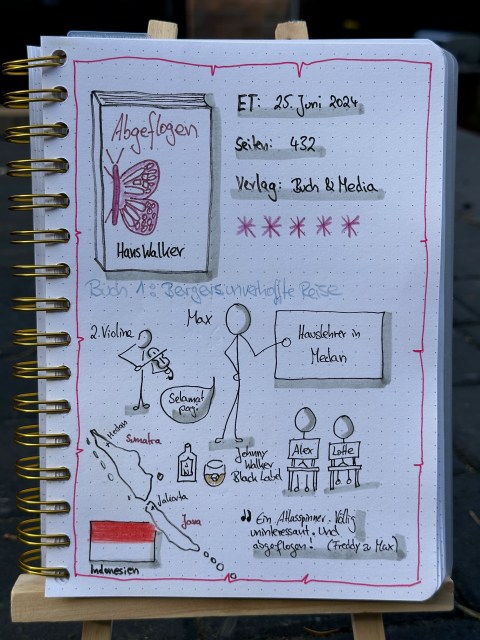 Abgeflogen
Hans Walker
ET: 25. Juni 2024
Seiten: 432
Verlag: Buch & Media
Buch 1: Bergers unverhoffte Reise
2. Violine
Max
Hauslehrer in
Medan
Selamat
pagi
Medan
Sumatra
Jakarta
Java
Johnny
Walker
Black Label
Alex
Lotte
Indonesien
" Ein Atlasspinner. Völlig
uninteressant. Und
abgeflogen! (Freddy zu Max)